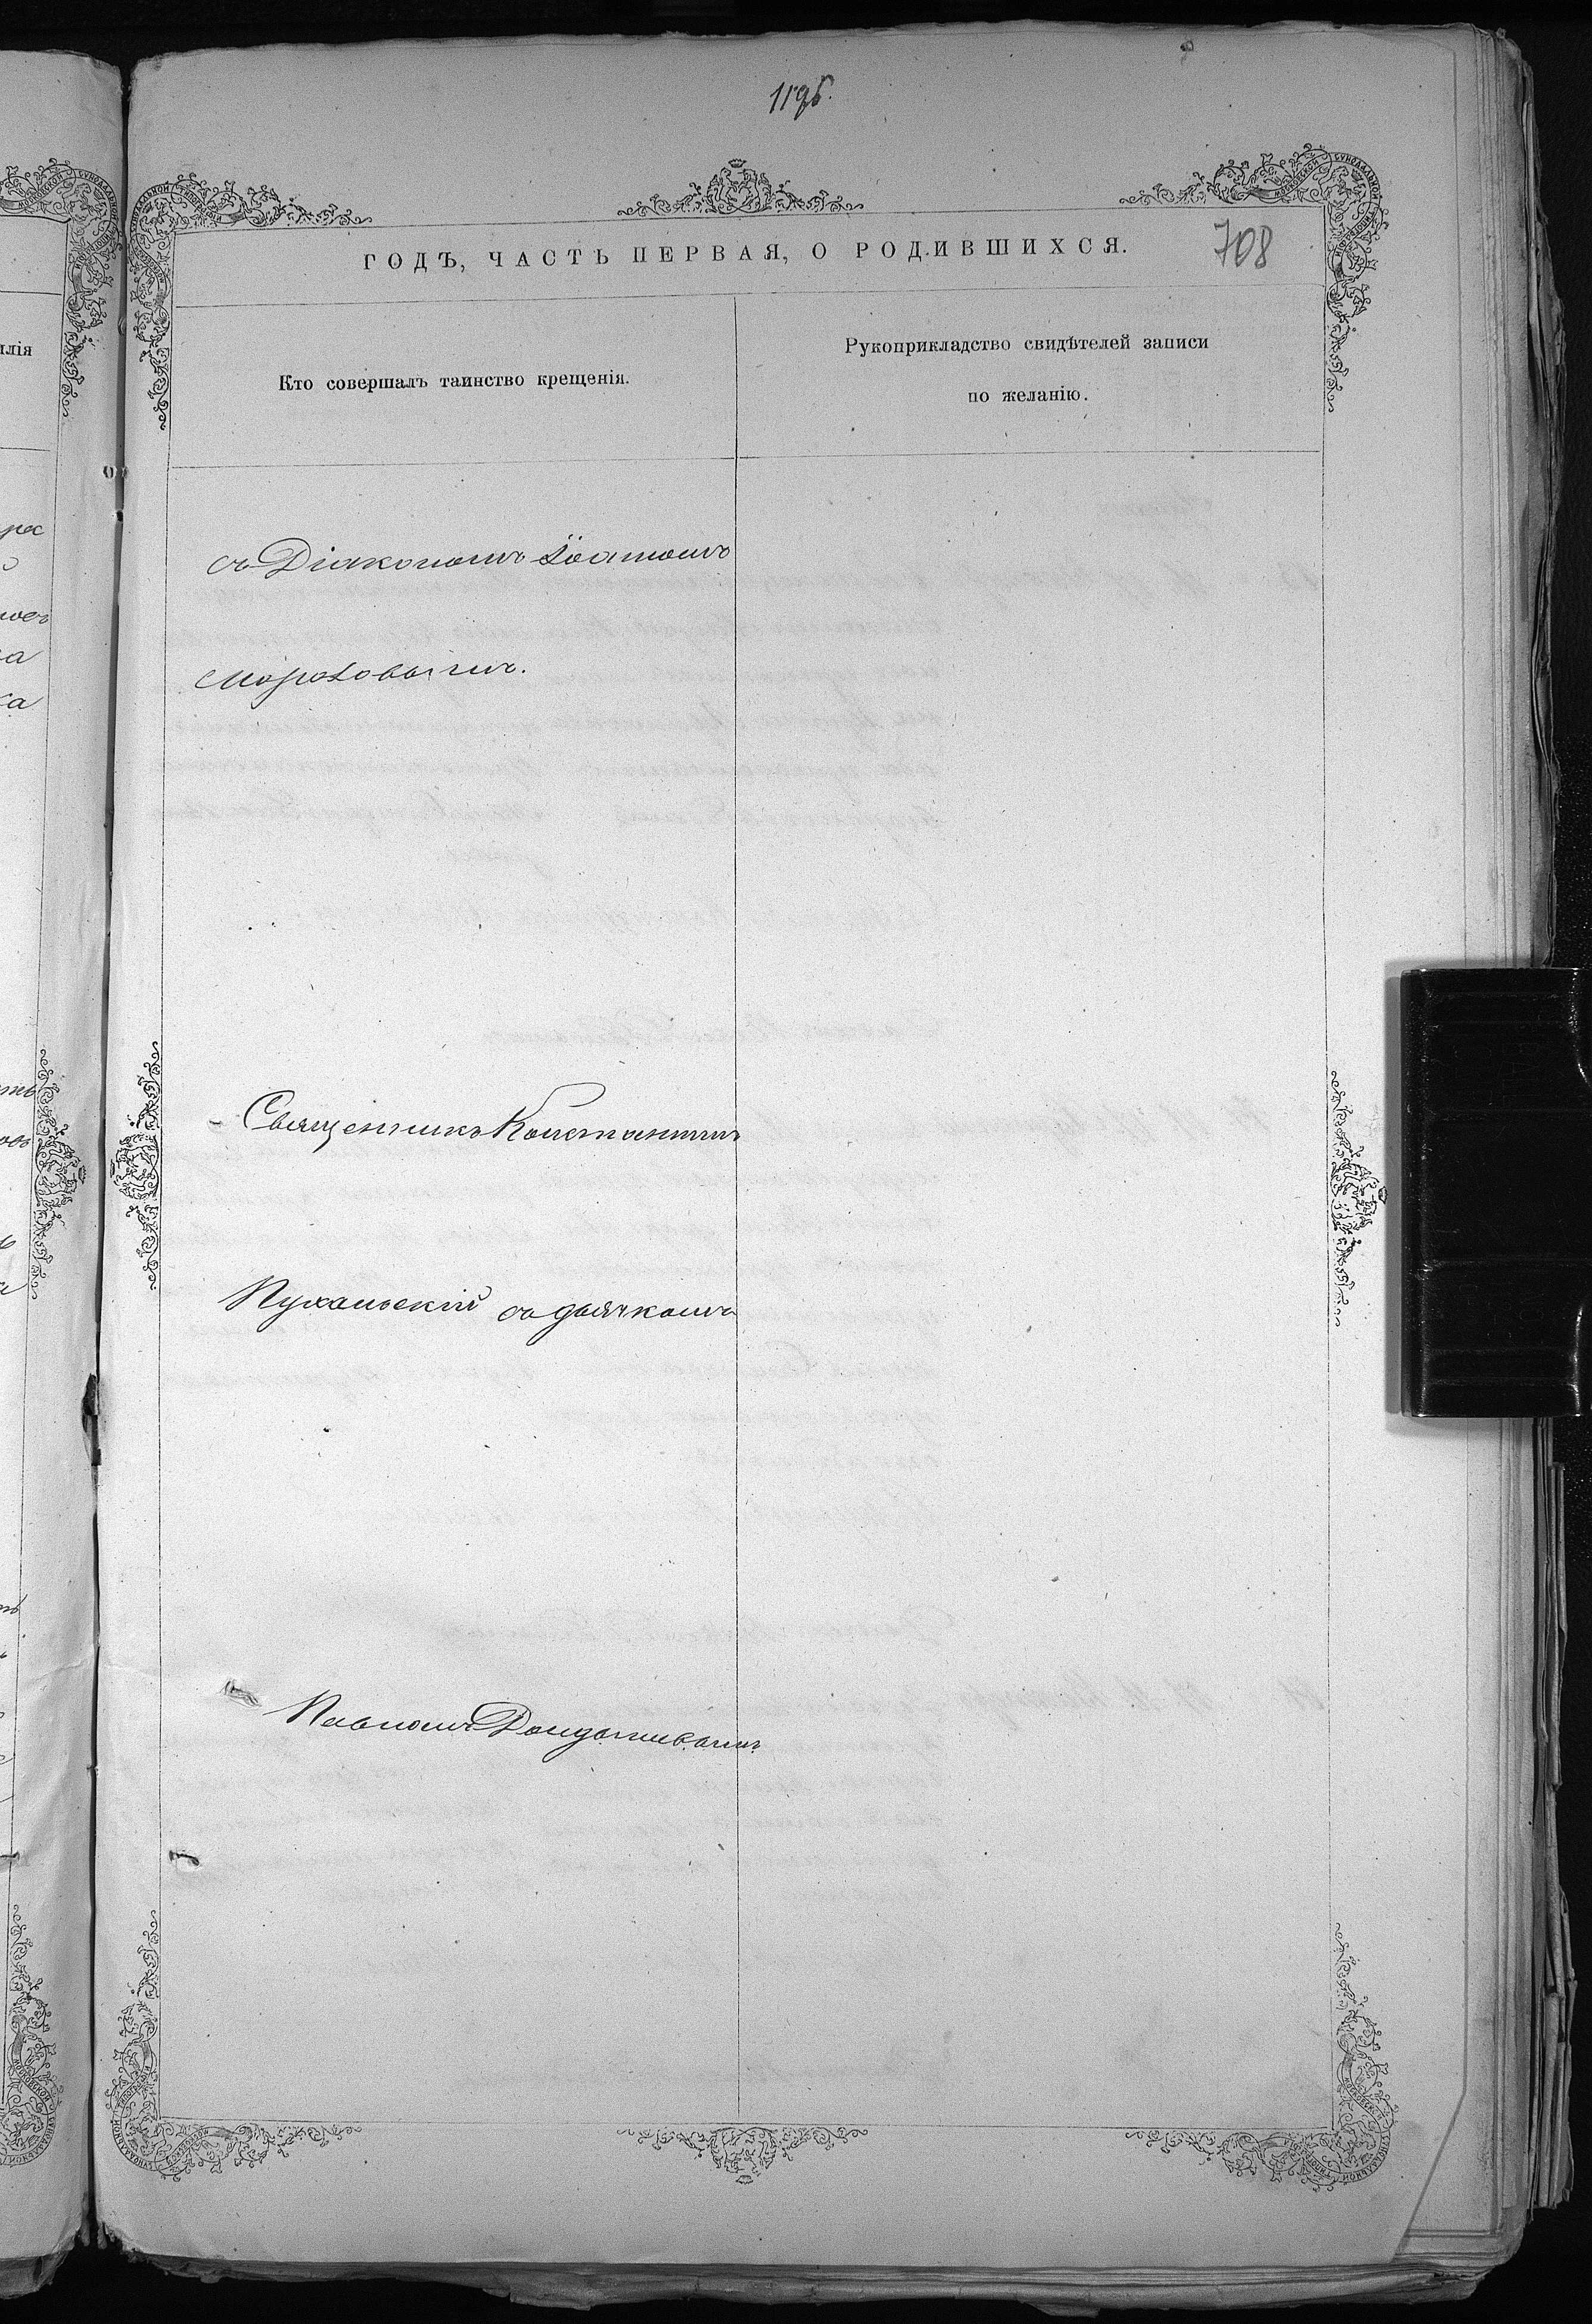 1195.
ГОДЪ, ЧАСТЬ ПЕРВАЯ, О РОДИВШИХСЯ.
708
Кто совершалъ таинство крещенія.
Рукоприкладство свидѣтелей записи
по желанію.
съ Діакономъ Іоанномъ
Мороховымъ.
Священникъ Константинъ
Пухальскій съ дьячкомъ
Павломъ